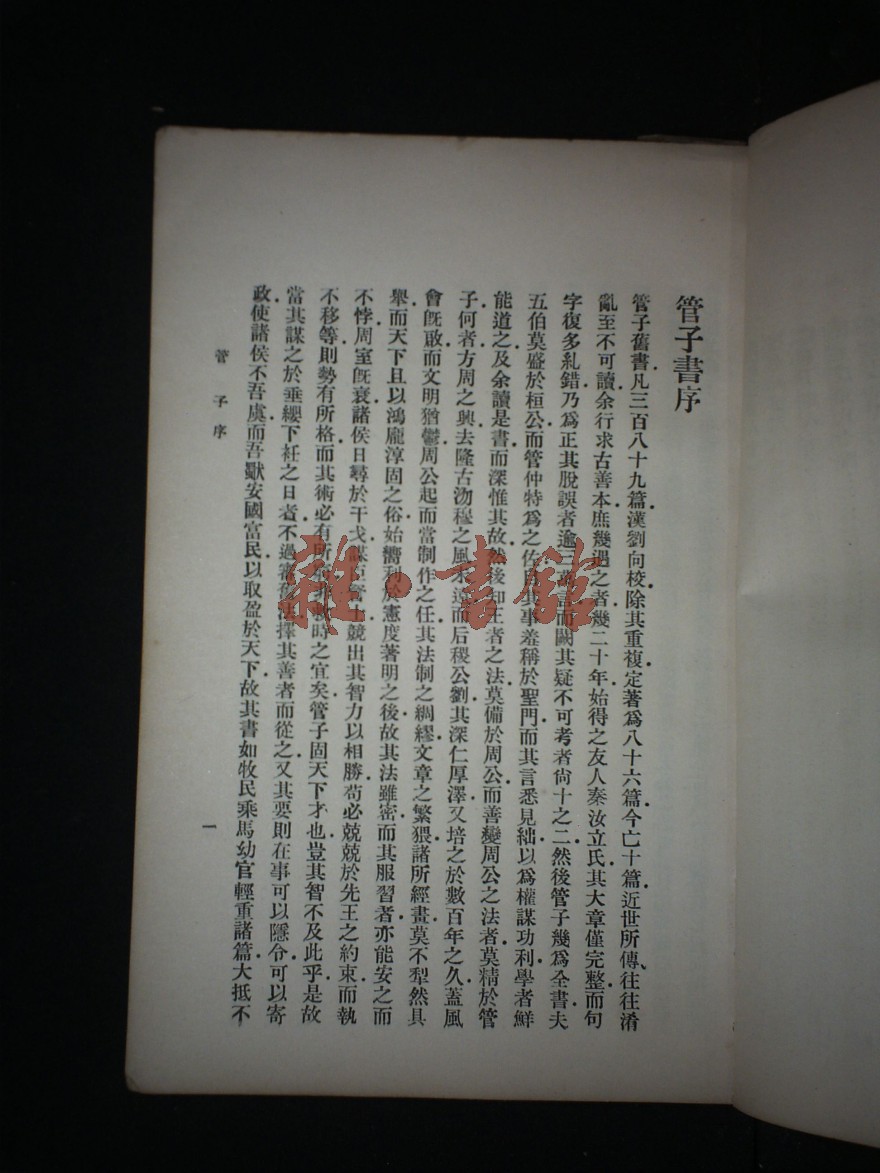 管子書序
管子舊書凡三百八十九篇漢劉向校除其重複定著爲八十六篇今亡十篇近世所傳往往淆
亂至不可讀余行求古善本庶幾遇之者幾二十年始得之友人秦汝立氏其大章僅完整而句
字復多糺錯乃爲正其脫誤者逾三而闕其疑不可考者尙十之二然後管子幾爲全書夫
五伯莫盛於桓公而管仲特爲之佐其事羞稱於聖門而其言悉見絀以爲權謀功利學者鮮
能道之及余讀是書而深惟其故然後知王者之法莫備於周公而善變周公之法者莫精於管
子何者方周之興去隆古沕穆之風未遠而后稷公劉其深仁厚澤又培之於數百年之久蓋風
會旣敢而文明猶鬱周公起而當制作之任其法制之綢繆文章之繁猥諸所經畫莫不犁然具
舉而天下且以鴻龐淳固之俗始嚮利於憲度著明之後故其法雖密而其服習者亦能安之而
不悖周室旣衰諸侯日尋於干戈謀臣競出其智力以相勝苟必兢兢於先王之約束而執
不移等則勢有所格而其術必有所時之宜矣管子固天下才也豈其智不及此乎是故
當其謀之於垂纓下衽之日者不過審法擇其善者而從之又其要則在事可以隱令可以寄
政使諸侯不吾虞而吾獸安國富民以取盈於天下故其書如牧民乘馬幼官輕重諸篇大抵不
管子序
一
雜·書館